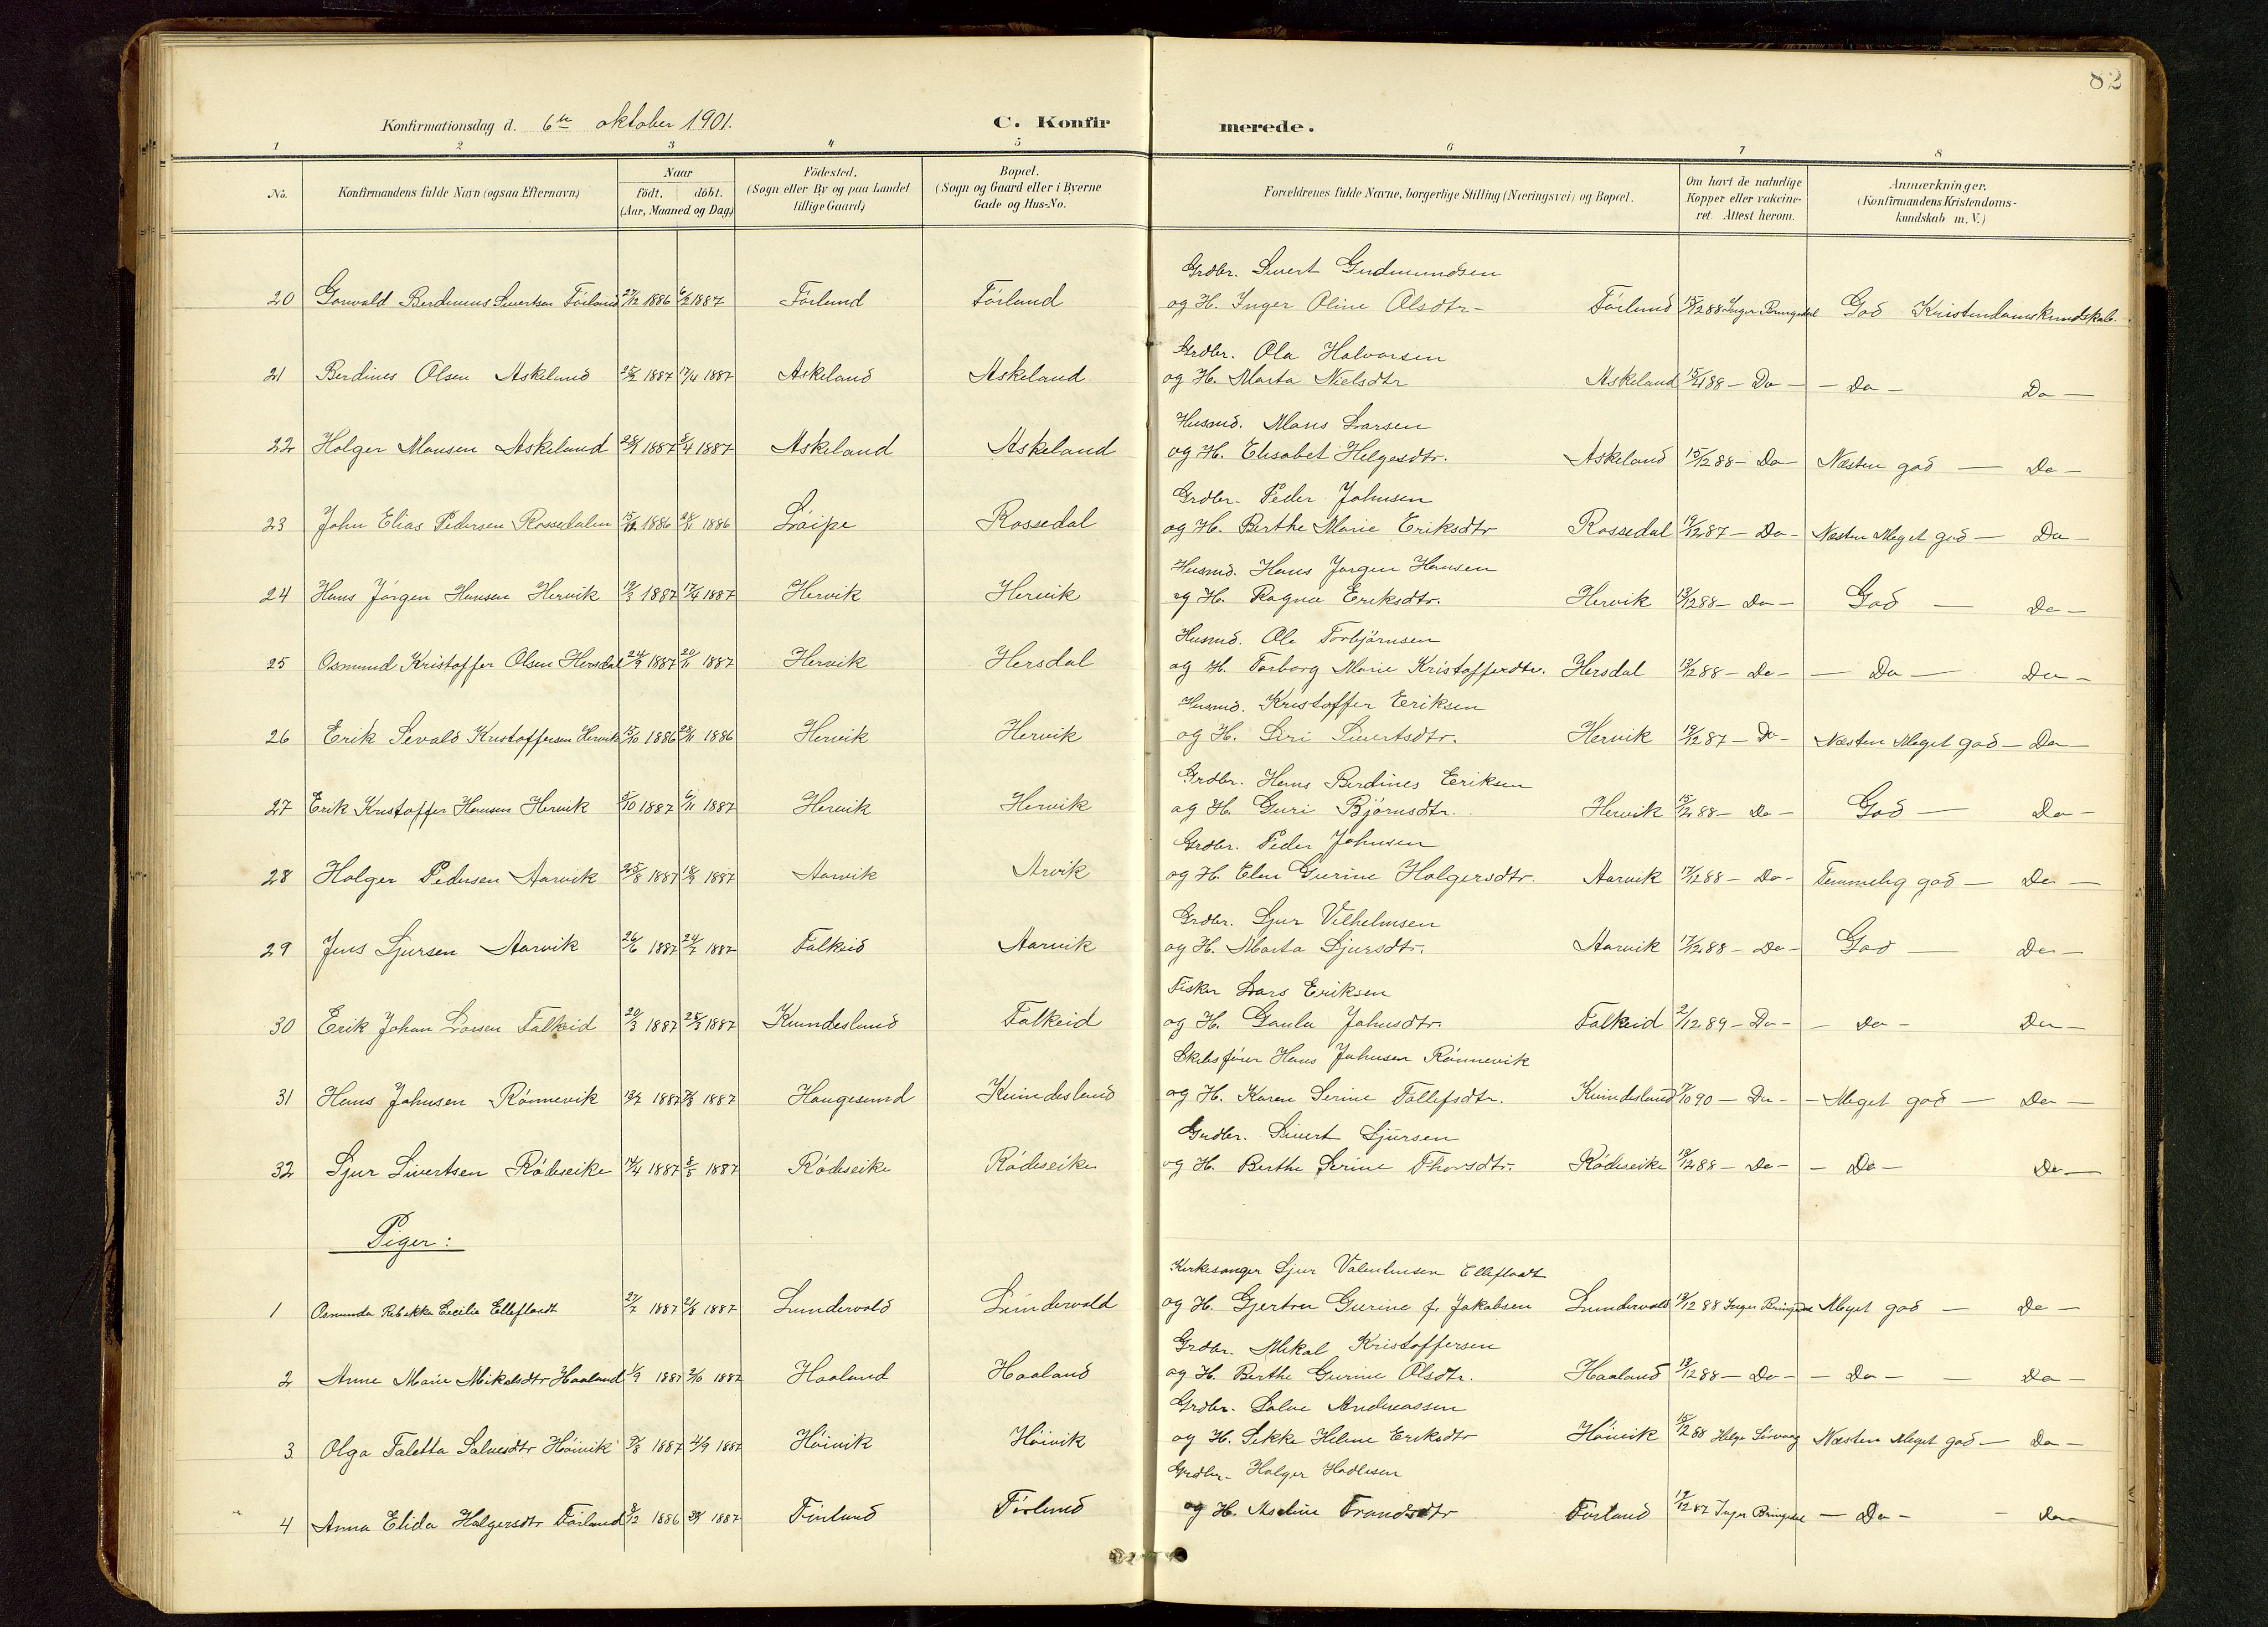 82
Konfirmationsdag d. 6te oktober 1901. C. Konfir merede.
1 2 3 4 5 6 7 8
No. Konfirmandens fulde Navn (ogsaa Efternavn) Naar födt. döbt. (Aar, Maaned og Dag) Födested. (Sogn eller By og paa Landet tillige Gaard) Bopæl. (Sogn og Gaard eller i Byerne Gade og Hus-No. Forældrenes fulde Navne, borgerlige Stilling (Næringsvei) og Bopæl. Om havt de naturlige Kopper eller vakcineret. Attest herom. Anmærkninger. (Konfirmandens Kristendomskundskab m. V.)
Grdbr. Sivert Gudmundsen
20 Berdinus Sivertsen Förland 27/12 1886 6/2 1887 Förland Förland og H. Inger Oline Olsdtr- Förland 15/12 88 Inger Bringedal God Kristendomskundskab.
Grdbr. Ola Halvorsen
21 Berdines Olsen Askeland 25/2 1887 17/4 1887 Askeland Askeland og H. Marta Nielsdtr Askeland 88 - Do - - Do - Do -
Husmd. Mons Larsen
22 Holger Monsen Askeland 1887 1887 Askeland Askeland og H. Elisabet Helgesdtr. Askeland 15/12 88 - Do - Næsten god - Do -
Grdbr. Peder Johnsen
23 John Elias Pedersen Rossedalen 1886 28/11 1886 Rossedal og H. Berthe Marie Eriksdtr Rossedal 19/12 87 - Do - Næsten Meget god - Do -
Husmd. Hans Jörgen Hansen
24 Hans Jörgen Hansen Hervik 19/3 1887 17/4 1887 Hervik Hervik og H. Ragna Eriksdtr. Hervik 19/12 88 - Do - God - Do -
Husmd. Ole Torbjörnsen
25 Osmund Kristoffer Olsen Hersdal 24/9 1887 20/11 1887 Hervik Hersdal og H. Torborg Marie Kristoffersdtr. Hersdal 19/12 88 - Do - - Do - Do -
Husmd. Kristoffer Eriksen
26 Erik Sevald Kristoffersen Hervik 15/10 1886 28/11 1886 Hervik Hervik og H. Siri Sivertsdtr. Hervik 19/12 87 - Do - Næsten Meget god - Do -
Grdbr. Hans Berdines Eriksen
27 Erik Kristoffer Hansen Hervik 5/10 1887 6/11 1887 Hervik Hervik og H. Guri Björnsdtr. Hervik 15/12 88 - Do - God - Do -
Grdbr. Peder Johnsen
28 Holger Pedersen Aarvik 25/8 1887 18/9 1887 Aarvik Arvik og H. Elen Gurine Holgersdtr. Aarvik 17/12 88 - Do - Temmelig god - Do -
Grdbr. Sjur Vilhelmsen
29 Jens Sjursen Aarvik 26/6 1887 24/7 1887 Falkeid Aarvik og H. Marta Sjursdtr. Aarvik 17/12 88 - Do - God - Do -
Fisker Lars Eriksen
30 Erik Johan Larsen Falkeid 20/3 1887 1887 Kvindesland Falkeid og H. Gaula Johnsdtr. Falkeid 2/12 89 - Do - - Do - Do -
Skibsförer Hans Johnsen Rönnevik
31 Hans Johnsen Rönnevik 1887 1887 Haugesund Kvindesland og H. Karen Serine Tollefsdtr. Kvindesland 90 - Do - - Meget god - Do -
Grdbr. Sivert Sjursen
32 Sjur Sivertsen Rödseike 14/4 1887 8/5 1887 Rödeseike Rödeseike og H. Berthe Serine Thorsdtr. Rödeseike 19/12 88 - Do - - Do - Do -
Piger:
Kirkesanger Sjur Elleflaadt
1 Osmunda Rebekka Cecilie Elleflaadt 27/7 1887 21/8 1887 Sundervold Sundervold og H. Gjertru Gurine f. Jakobsen Sundervold 19/12 88 Inger Bringedal Meget god - Do -
Grdbr. Mikal Kristoffersen
2 Anne Marie Mikalsdtr Haaland 1/9 1887 2/10 1887 Haaland Haaland og H. Berthe Gurine Olsdtr. Haaland 19/12 88 - Do - - Do - - Do -
Grdbr. Salve Andreassen
3 Olga Taletta Salvesdtr Höivik 1887 4/9 1887 Höivik Höivik og H. Sikke Helene Eriksdtr Höivik 15/12 88 Helge Sörvaag Næsten Meget god - Do -
Grdbr. Holger Hadlesen
4 Anna Elida Holgersdtr Förland 1886 1887 Förland Förland og H. Aseline Trondsdtr Förland 19/12 87 Inger Bringedal - Do - - Do -